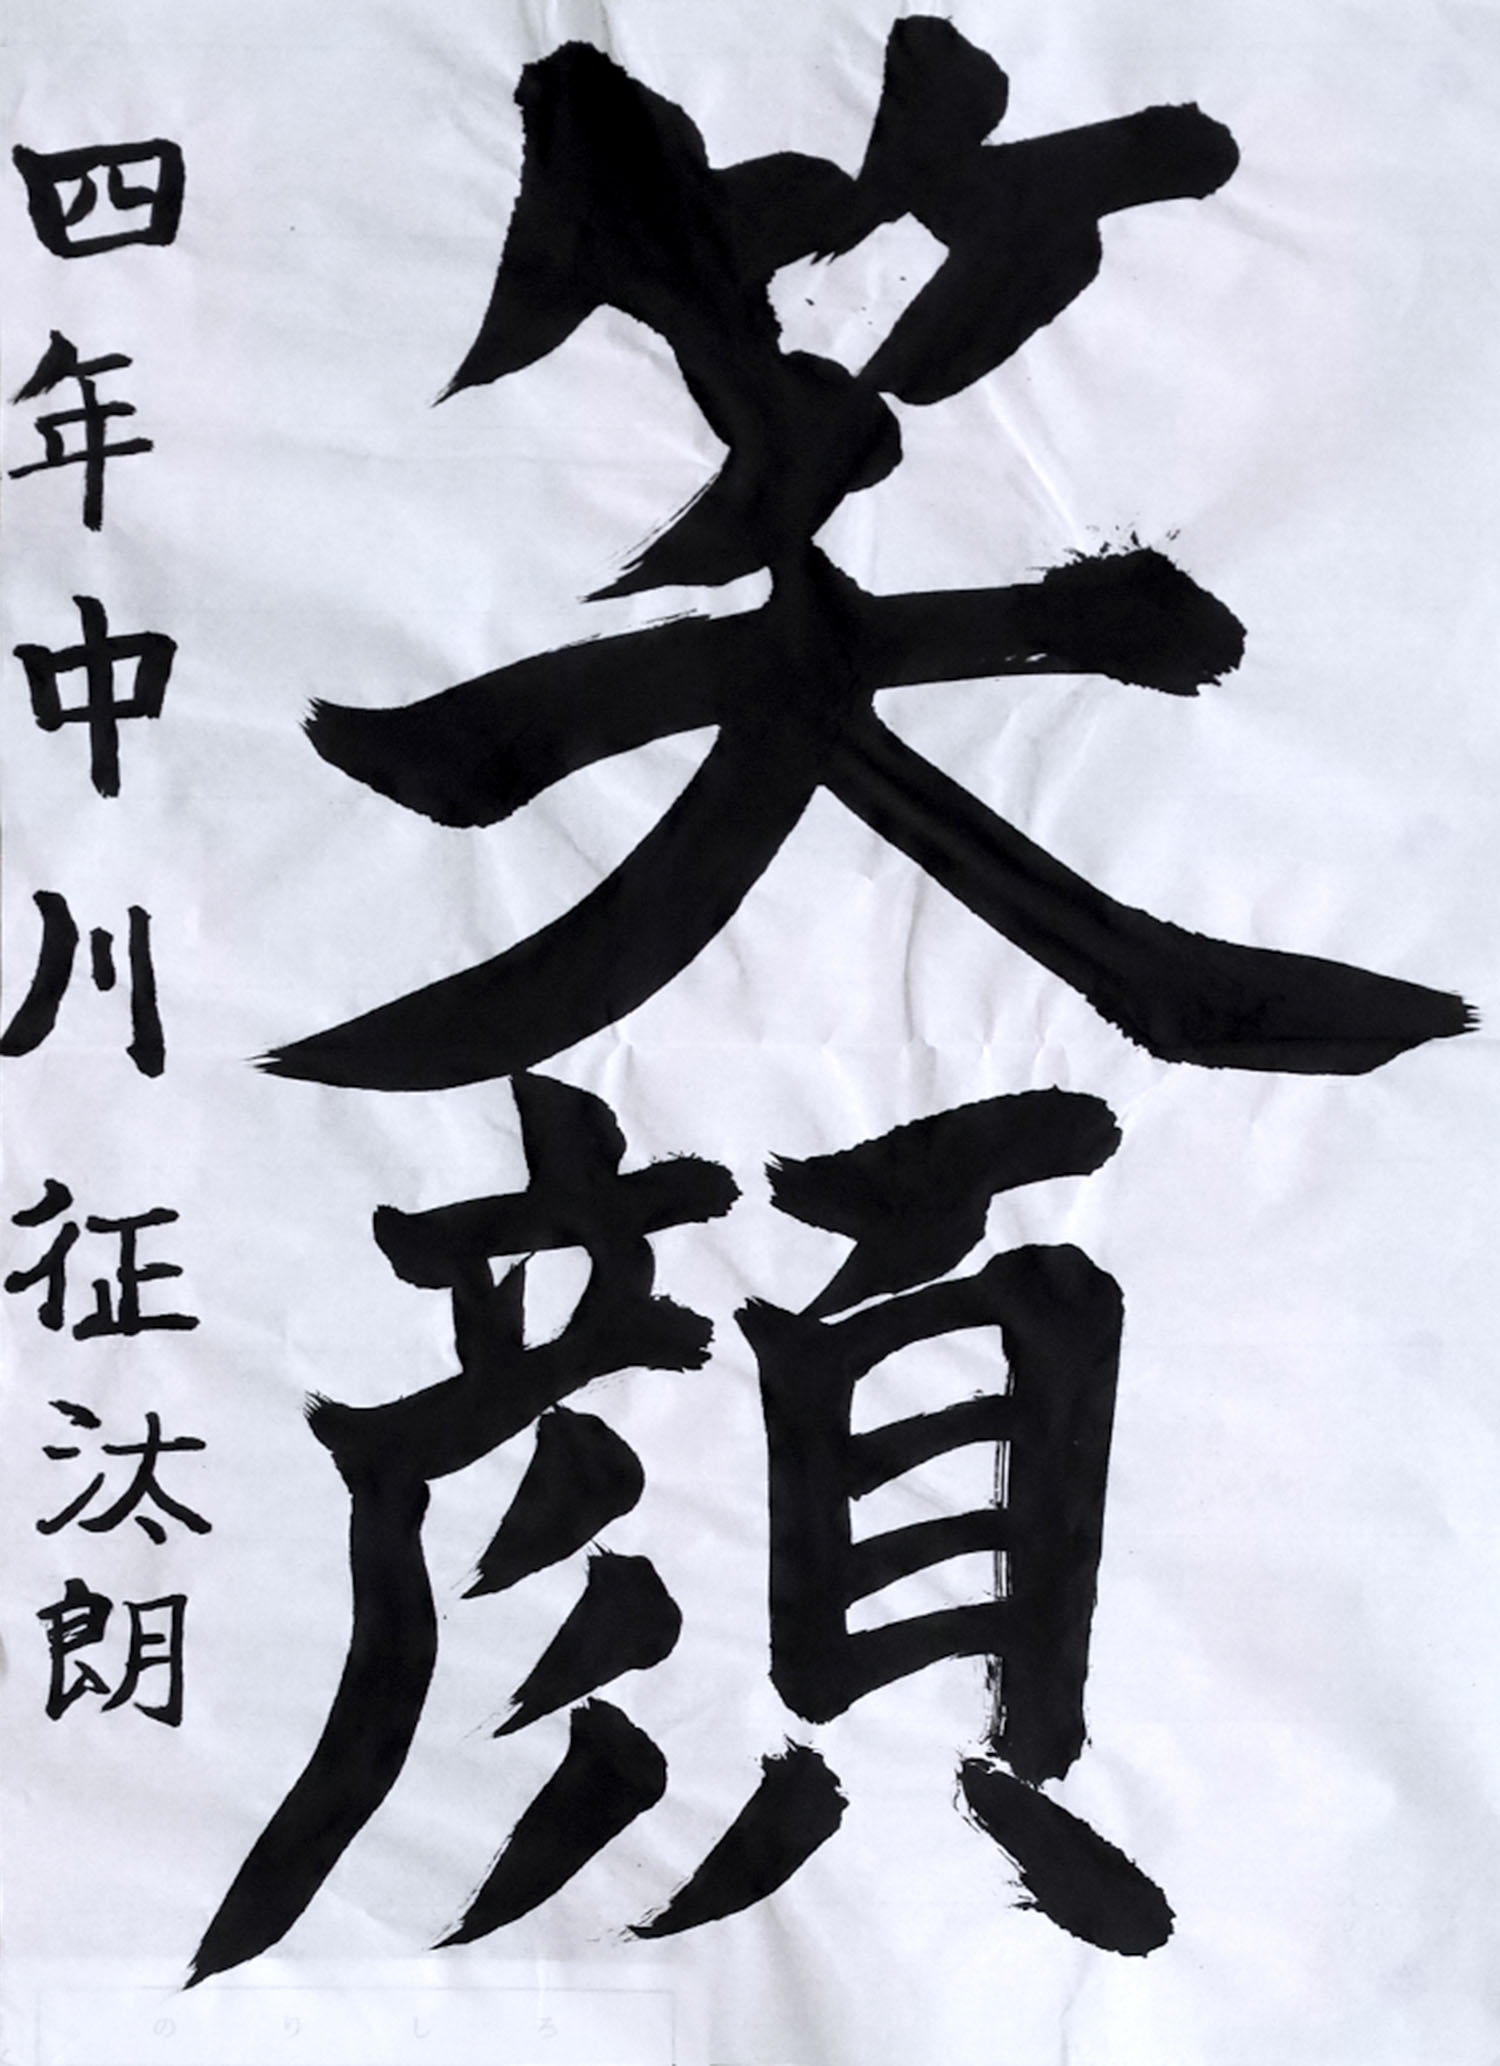 笑顔
四年中川征汰朗
のりしろ